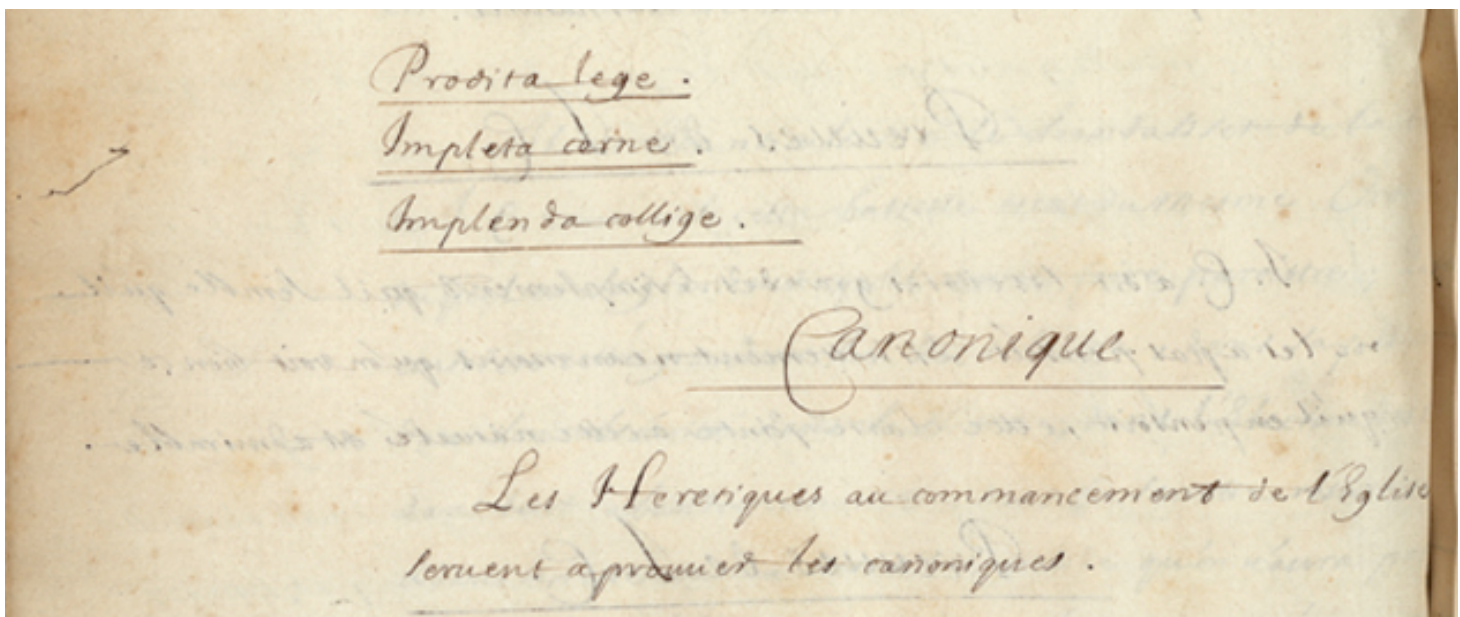 Prodita lege.
Impleta cerne.
Implenda collige.
Canonique
Les Heretiques au commancement de l'Eglise
seruent a prouuer les canoniques.